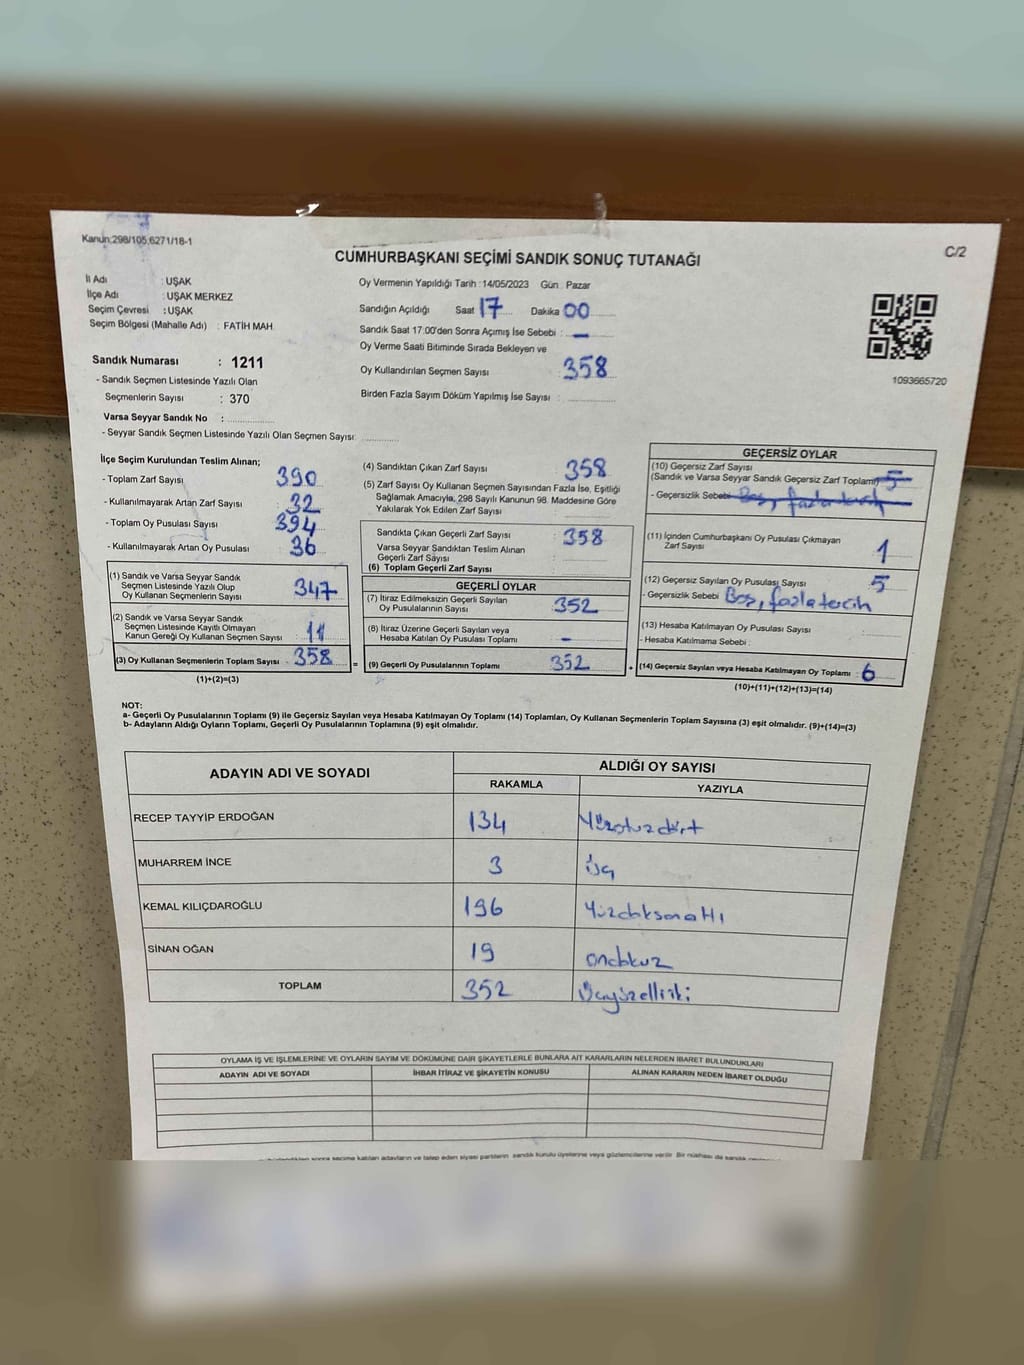 Kanun;298/105,6271/18-1
C/2
CUMHURBAŞKANI SEÇİMİ SANDIK SONUÇ TUTANAĞI
İl Adı : UŞAK
İlçe Adı : UŞAK MERKEZ
Seçim Çevresi : UŞAK
Seçim Bölgesi (Mahalle Adı) : FATİH MAH.
Sandık Numarası : 1211
- Sandık Seçmen Listesinde Yazılı Olan
Seçmenlerin Sayısı : 370
Varsa Seyyar Sandık No :
- Seyyar Sandık Seçmen Listesinde Yazılı Olan Seçmen Sayısı:
Oy Vermenin Yapıldığı Tarih : 14/05/2023 Gün : Pazar
Sandığın Açıldığı Saat 17 Dakika 00
Sandık Saat 17:00'den Sonra Açımış İse Sebebi : -
Oy Verme Saati Bitiminde Sırada Bekleyen ve
Oy Kullandırılan Seçmen Sayısı 358
Birden Fazla Sayım Döküm Yapılmış İse Sayısı :
1093665720
İlçe Seçim Kurulundan Teslim Alınan;
- Toplam Zarf Sayısı 390
- Kullanılmayarak Artan Zarf Sayısı 32
- Toplam Oy Pusulası Sayısı 394
- Kullanılmayarak Artan Oy Pusulası 36
(1) Sandık ve Varsa Seyyar Sandık
Seçmen Listesinde Yazılı Olup
Oy Kullanan Seçmenlerin Sayısı 347
(2) Sandık ve Varsa Seyyar Sandık
Seçmen Listesinde Kayıtlı Olmayan
Kanun Gereği Oy Kullanan Seçmen Sayısı 11
(3) Oy Kullanan Seçmenlerin Toplam Sayısı 358
(1)+(2)=(3)
(4) Sandıktan Çıkan Zarf Sayısı 358
(5) Zarf Sayısı Oy Kullanan Seçmen Sayısından Fazla İse, Eşitliği
Sağlamak Amacıyla, 298 Sayılı Kanunun 98. Maddesine Göre
Yakılarak Yok Edilen Zarf Sayısı
Sandıkta Çıkan Geçerli Zarf Sayısı 358
Varsa Seyyar Sandıktan Teslim Alınan
Geçerli Zarf Sayısı :
(6) Toplam Geçerli Zarf Sayısı
GEÇERLİ OYLAR
(7) İtiraz Edilmeksizin Geçerli Sayılan
Oy Pusulalarının Sayısı 352
(8) İtiraz Üzerine Geçerli Sayılan veya
Hesaba Katılan Oy Pusulası Toplamı -
= (9) Geçerli Oy Pusulalarının Toplamı 352 +
GEÇERSİZ OYLAR
(10) Geçersiz Zarf Sayısı
(Sandık ve Varsa Seyyar Sandık Geçersiz Zarf Toplamı) 5
- Geçersizlik Sebebi Boş, fazla tercih
(11) İçinden Cumhurbaşkanı Oy Pusulası Çıkmayan
Zarf Sayısı 1
(12) Geçersiz Sayılan Oy Pusulası Sayısı 5
- Geçersizlik Sebebi Boş, fazla tercih
(13) Hesaba Katılmayan Oy Pusulası Sayısı
- Hesaba Katılmama Sebebi :
(14) Geçersiz Sayılan veya Hesaba Katılmayan Oy Toplamı : 6
(10)+(11)+(12)+(13)=(14)
NOT:
a- Geçerli Oy Pusulalarının Toplamı (9) ile Geçersiz Sayılan veya Hesaba Katılmayan Oy Toplamı (14) Toplamları, Oy Kullanan Seçmenlerin Toplam Sayısına (3) eşit olmalıdır. (9)+(14)=(3)
b- Adayların Aldığı Oyların Toplamı, Geçerli Oy Pusulalarının Toplamına (9) eşit olmalıdır.
ADAYIN ADI VE SOYADI
ALDIĞI OY SAYISI
RAKAMLA YAZIYLA
RECEP TAYYİP ERDOĞAN 134 Yüzotuzdört
MUHARREM İNCE 3 üç
KEMAL KILIÇDAROĞLU 196 Yüzdoksanaltı
SİNAN OĞAN 19 ondokuz
TOPLAM 352 Üçyüzelliiki
OYLAMA İŞ VE İŞLEMLERİNE VE OYLARIN SAYIM VE DÖKÜMÜNE DAİR ŞİKAYETLERLE BUNLARA AİT KARARLARIN NELERDEN İBARET BULUNDUKLARI
ADAYIN ADI VE SOYADI İHBAR İTİRAZ VE ŞİKAYETİN KONUSU ALINAN KARARIN NEDEN İBARET OLDUĞU
sonra seçime katılan adayların ve talep eden siyasi partilerin sandık kurulu üyelerine veya gözlemcilerine verilir. Bir nüshası da sandık